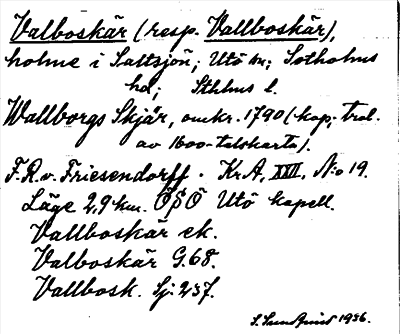 Valboskär (resp. Vallboskär),
holme i Saltsjön; Utö sn; Sotholms
hd; Sthlms l.
Wallborgs Skjär, omkr. 1790 (kop. trol.
av 1600-talskarta).
F.R.v. Friesendorff. Kr.A, XXII, N:o 19.
Läge 2,9 km. ÖSÖ Utö kapell.
Vallboskär ek.
Valboskär G.68.
Vallbosk. Sj. 237.
S. Sundquist 1936.